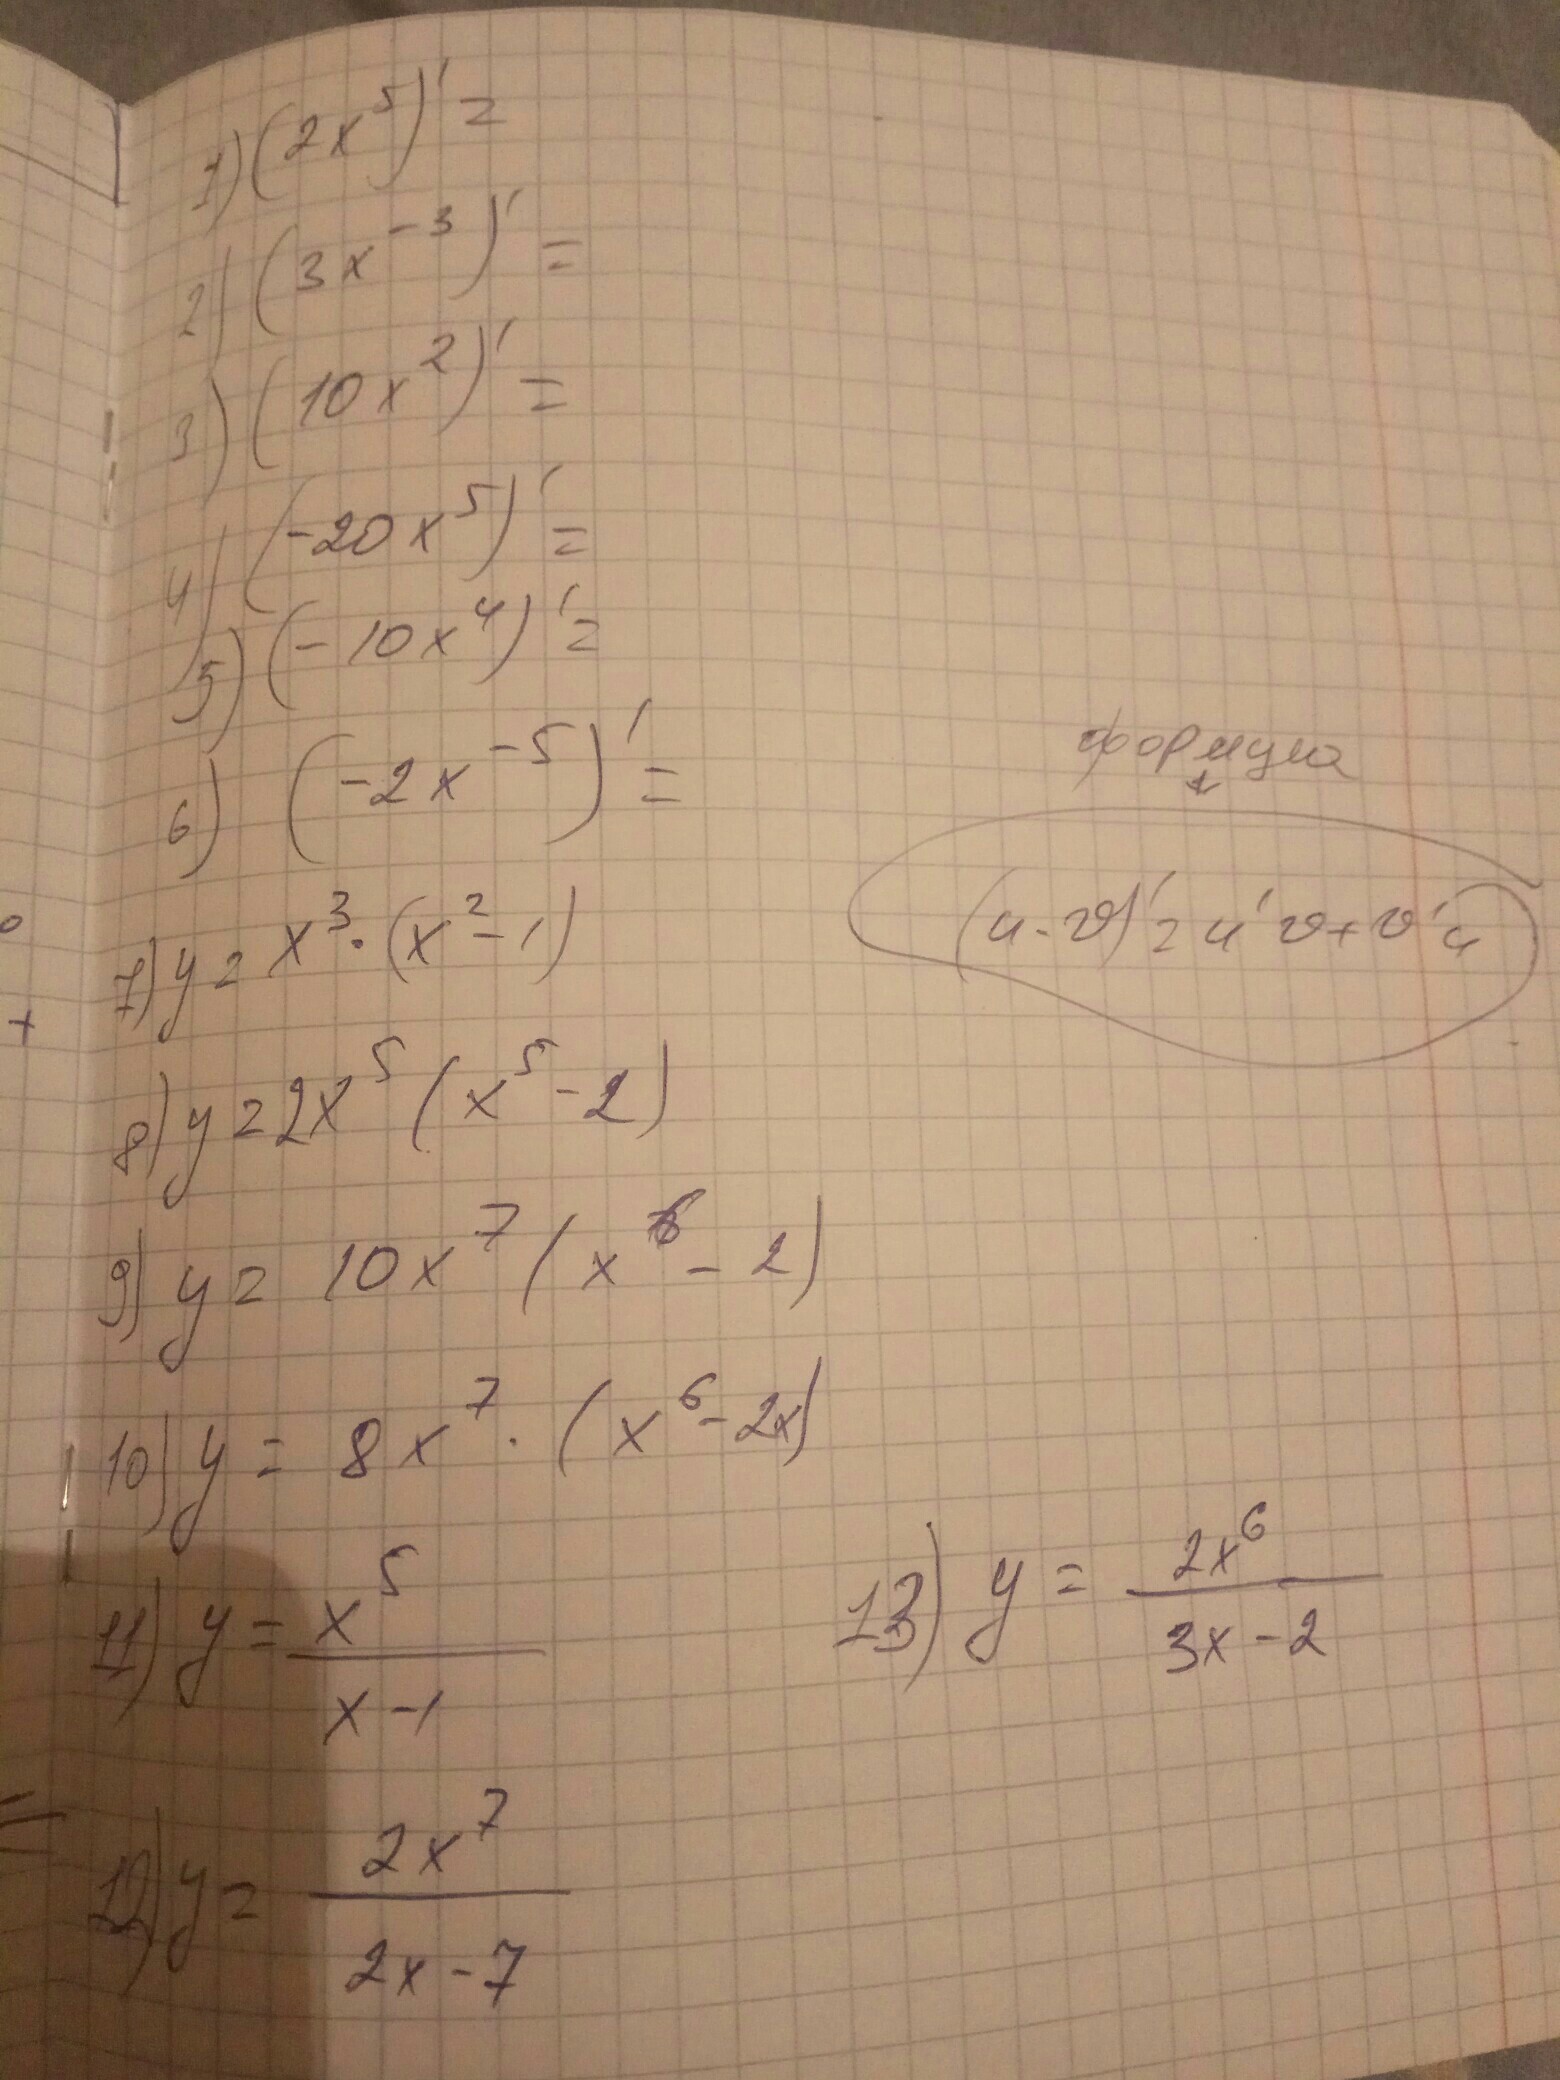 1) (2x⁵)' =
2) (3x⁻³)' =
3) (10x²)' =
4) (-20x⁵)' =
5) (-10x⁴)' =
6) (-2x⁻⁵)' =
формула
7) y = x³·(x²-1)
(u·v)' = u'v + v'u
8) y = 2x⁵(x⁵-2)
9) y = 10x⁷(x⁶-2)
10) y = 8x⁷·(x⁶-2x)
11) y = x⁵/(x-1)
13) y = 2x⁶/(3x-2)
12) y = 2x⁷/(2x-7)